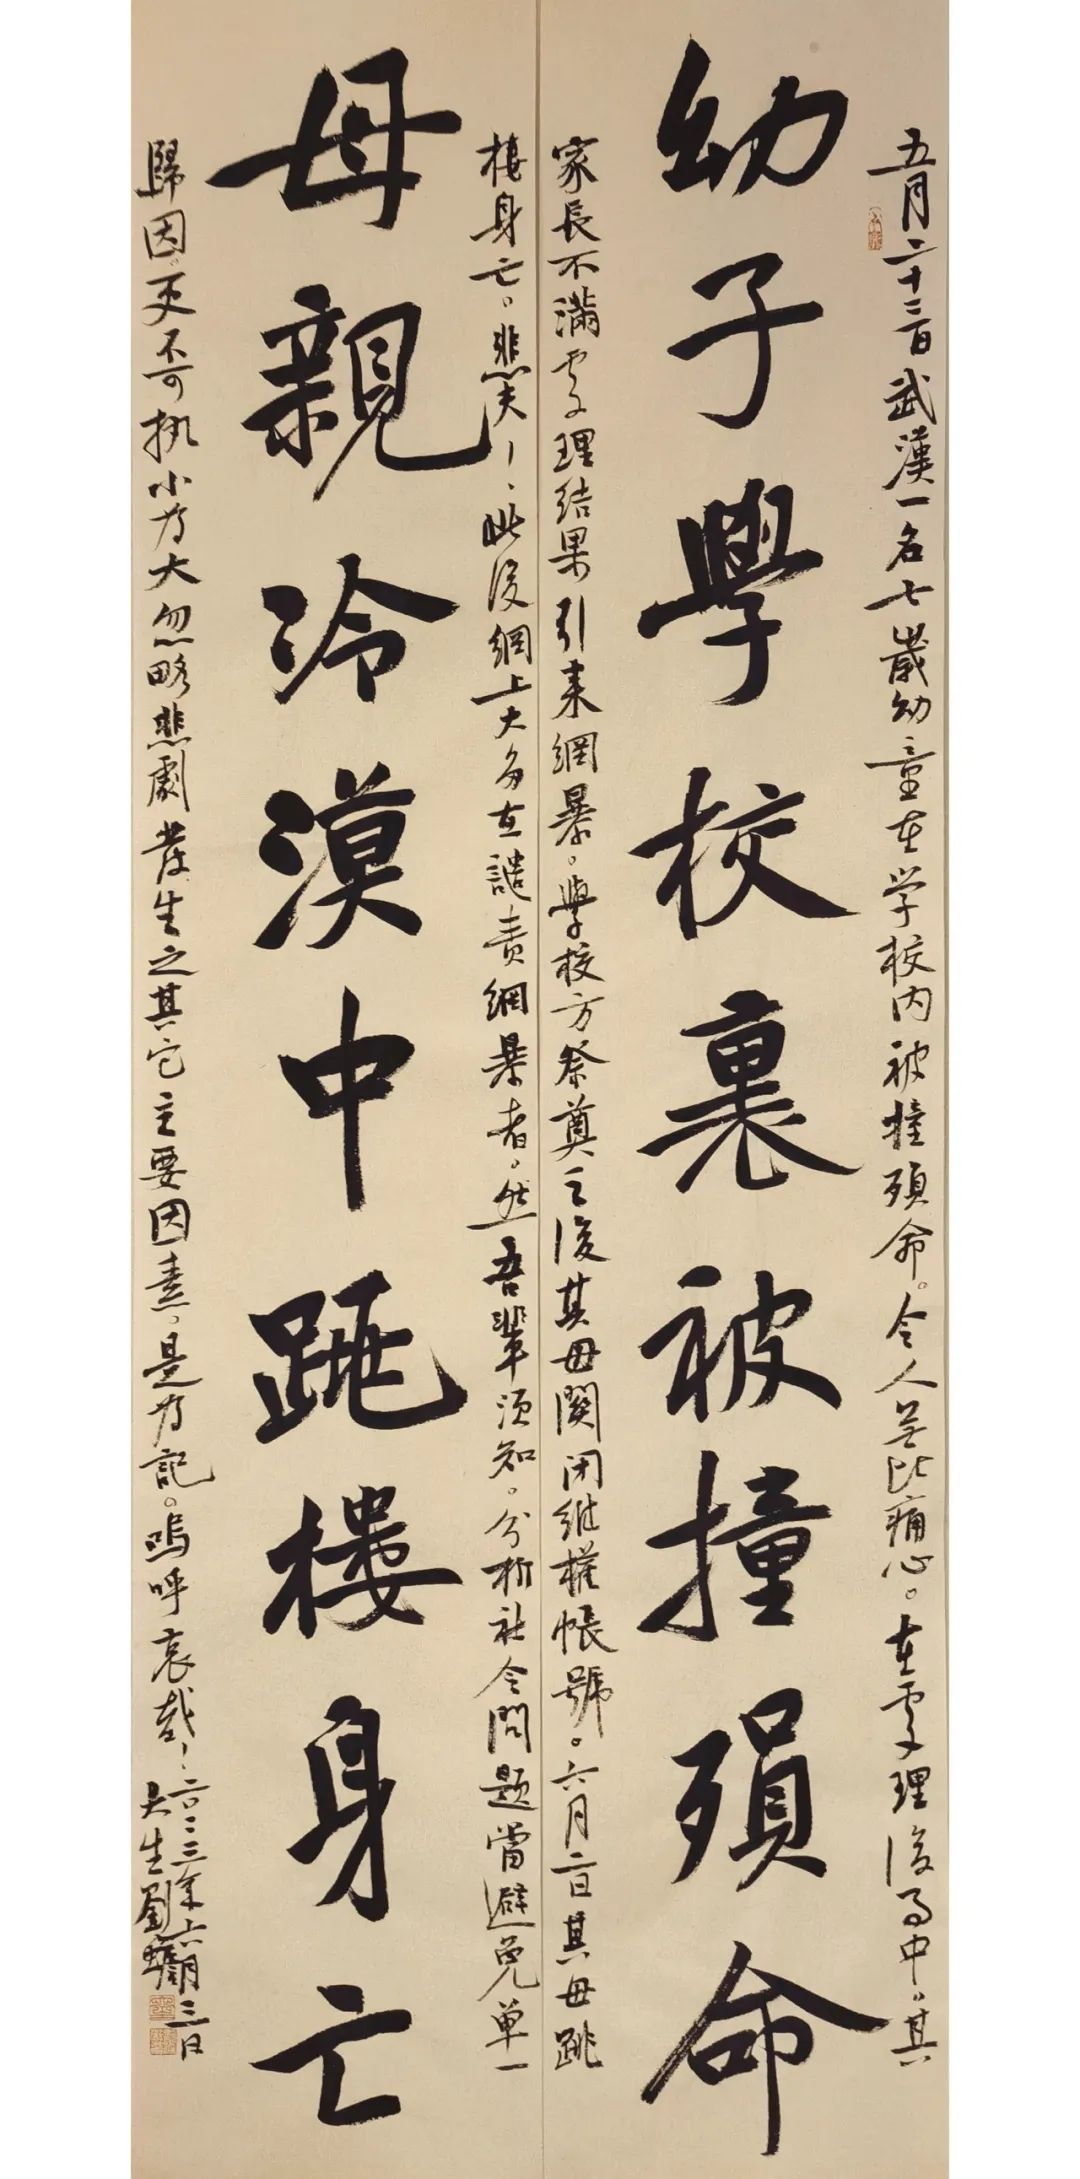 五月二十三日武漢一名七歲幼童在学校内被撞殞命。令人無比痛心。在處理後事中。其
幼子學校裏被撞殞命
家長不滿處理結果引來網暴。學校方祭奠之後其母關閉維權帳號。六月二日其母跳
樓身亡。悲夫！此後網上大多在譴責網暴者。然吾輩須知。分析社会問題當避免單一
母親冷漠中跳樓身亡
歸因。更不可執小为大忽略悲劇發生之其它主要因素。是为記。嗚呼哀哉！
二〇二三年六月三日
大生劉